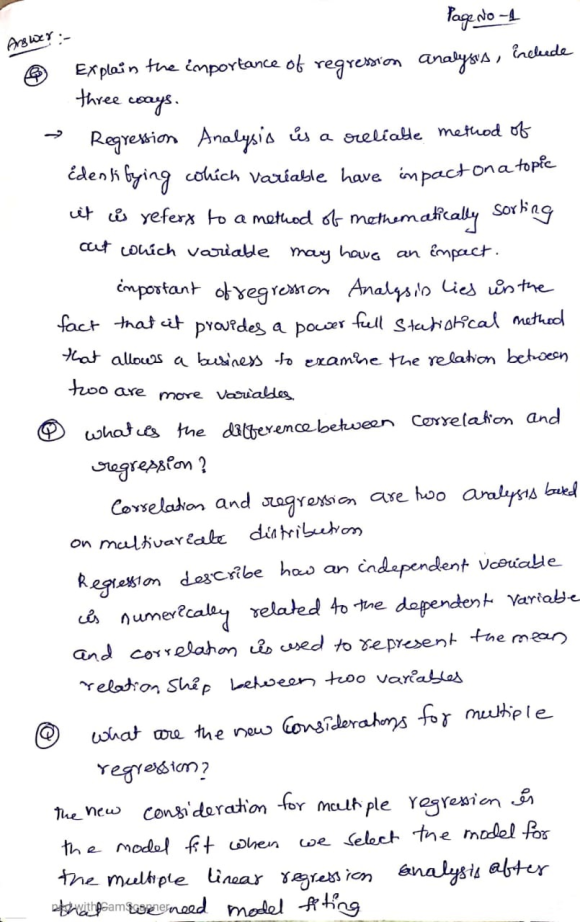 Page No -1
Answer :-
Q Explain the importance of regression analysis, include
three ways.
→ Regression Analysis is a reliable method of
identifying which variable have impact on a topic
it is referx to a method of mathematically sorting
out which variable may have an impact.
important of regression Analysis lies in the
fact that it provides a power full statistical method
that allows a business to examine the relation between
two are more variables
Q what is the difference between correlation and
regression?
Correlation and regression are two analysis based
on multivariate distribution
Regression describe how an independent variable
is numerically related to the dependent variable
and correlation is used to represent the mean
relation ship between two variables
Q what are the new Considerations for multiple
regression?
The new consideration for multiple regression is
the model fit when we select the model for
the multiple linear regression analysis after
that we need model fitting
CamScanner